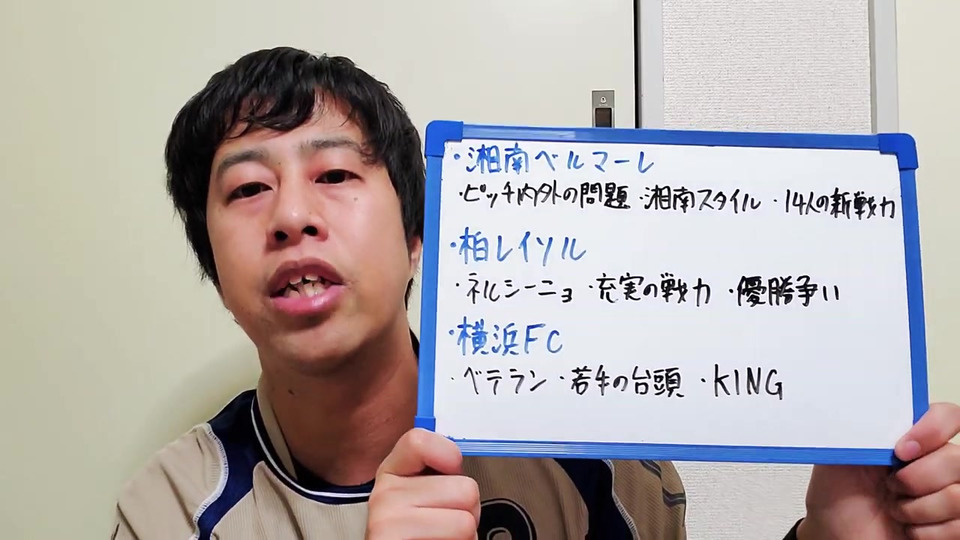 ・湘南ベルマーレ
・ピッチ内外の問題・湘南スタイル・14人の新戦力
・柏レイソル
・ネルシーニョ・充実の戦力・優勝争い
・横浜FC
・ベテラン・若手の台頭・KING